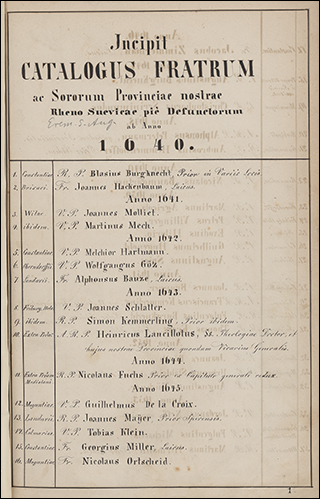 Incipit
CATALOGUS FRATRUM
ac Sororum Provinciae nostrae
Rheno Suevicae piè Defunctorum
Erem. S. Aug.
ab Anno
1640.
1. Constantiae R. P. Blasius Burgknecht, Prior in
2. Fr. Joannes Hackenbaum, Laicus.
Anno 1641.
3. V. P. Joannes Molliet.
4. ibidem. V. P. Martinus Mech.
Anno 1642.
5. Constantiae V. P. Melchior Hartmann.
6. V. P. Wolfgangus Göz.
7. Fr. Alphonsus Bauze, Laicus.
Anno 1643.
8. V. P. Joannes Schlatter.
9. ibidem. R. P. Simon Kemmerling, Prior ibidem.
10. A. R. P. Heinricus Lancillotus, SS. Theologiae Doctor, et
hujus nostrae Provinciae quondam Vicarius Generalis.
Anno 1644.
11. R. P. Nicolaus Fuchs Prior è Capitulo generali redux.
Anno 1645.
12. Moguntiae V. P. Guilhelmus De la Croix.
13. R. P. Joannes Mayer Prior Spirensis.
14. Colmariae V. P. Tobias Klein.
15. Constantiae Fr. Georgius Miller, Laicus.
16. Moguntiae Fr. Nicolaus Ortscheid.
1